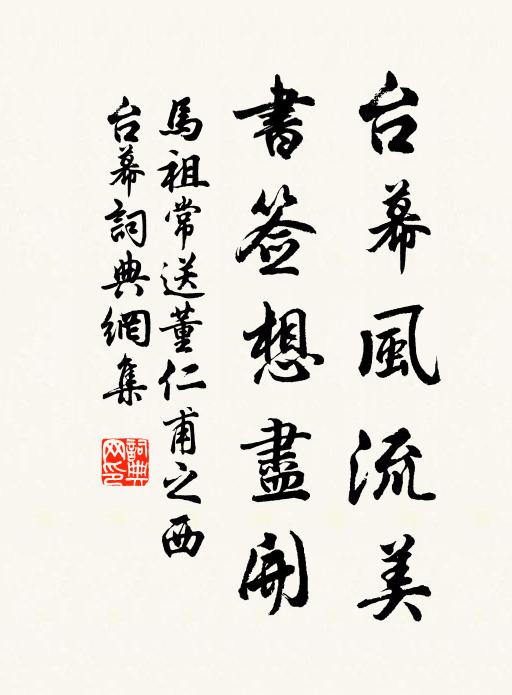 台幕風流美
書签想盡開
馬祖常送董仁甫之西
台幕詞典網集
詞典網印